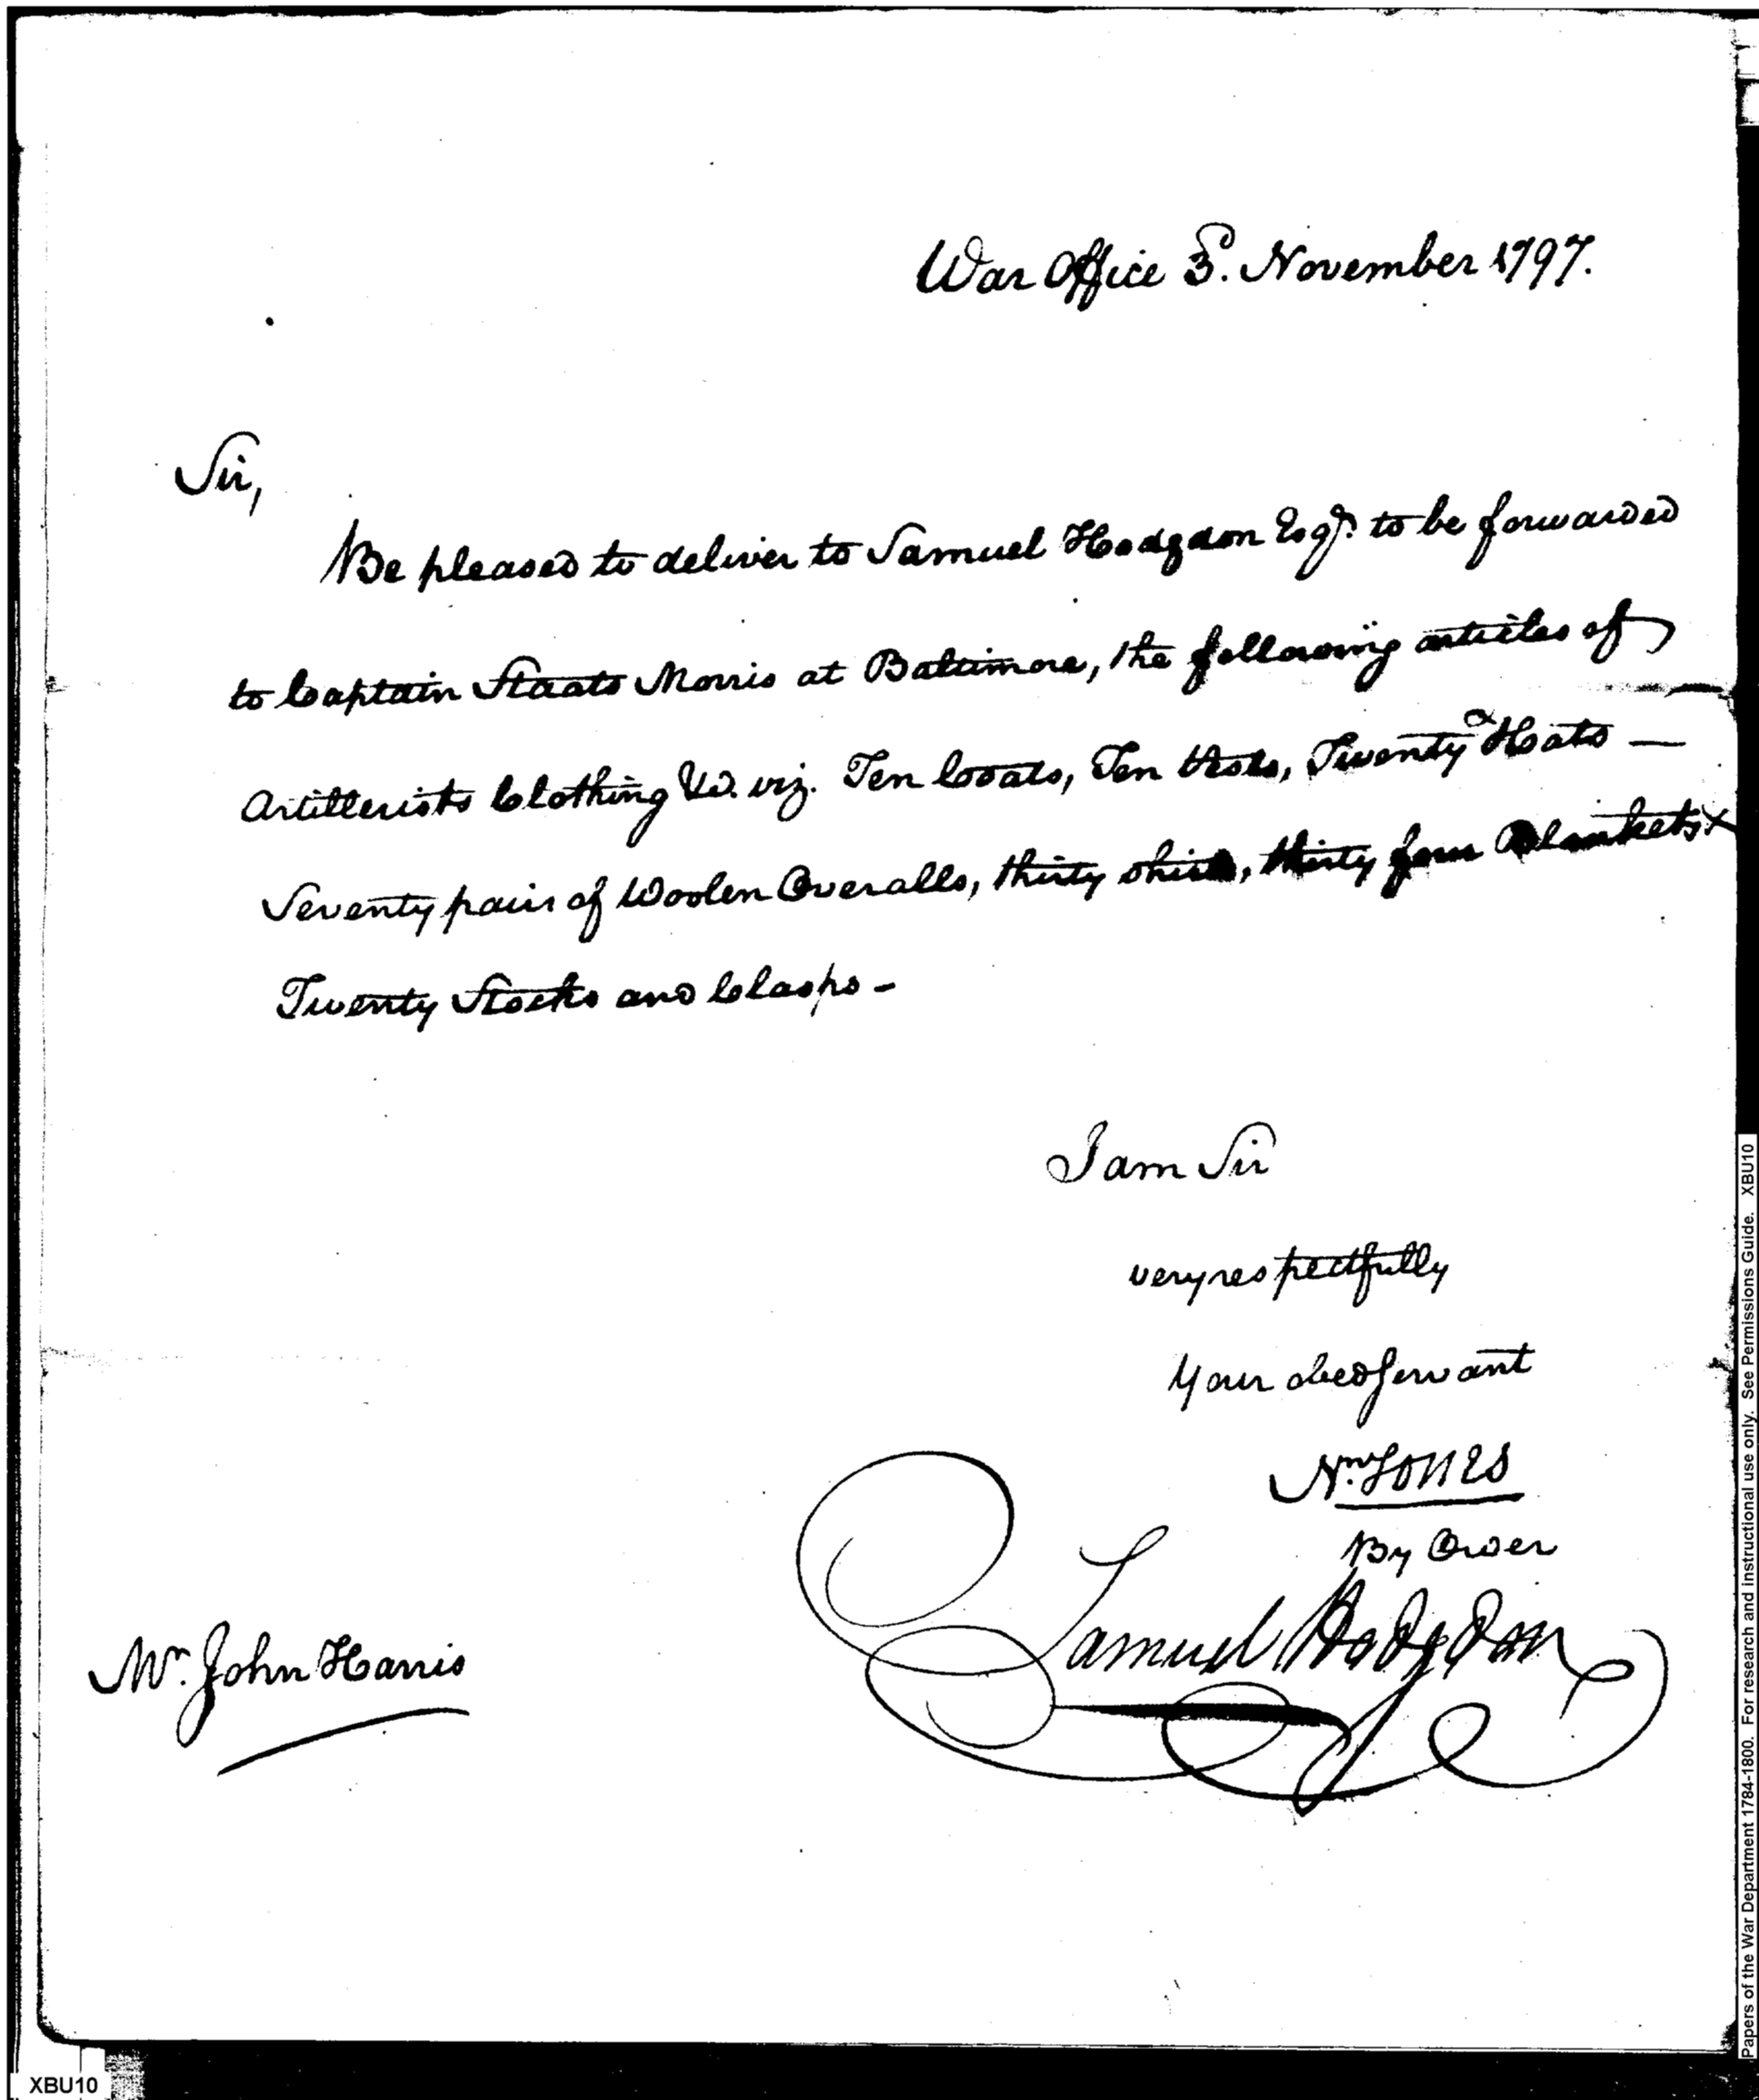 War Office 3d. November 1797.
Sir,
Be pleased to deliver to Samuel Hodgdon Esqr. to be forwarded
to Captain Staats Morris at Baltimore, the following articles of
Artillerists Clothing &c. viz. Ten Coats, Ten Vests, Twenty Hats —
Seventy pairs of Woolen Overalls, thirty shirts, thirty four Blankets x
Twenty Stocks and Clasps -
I am Sir
very respectfully
Your obed Servant
Nn. Jones
By Order
Samuel Hodgdon
Mr. John Harris
Papers of the War Department 1784-1800. For research and instructional use only. See Permissions Guide. XBU10
XBU10